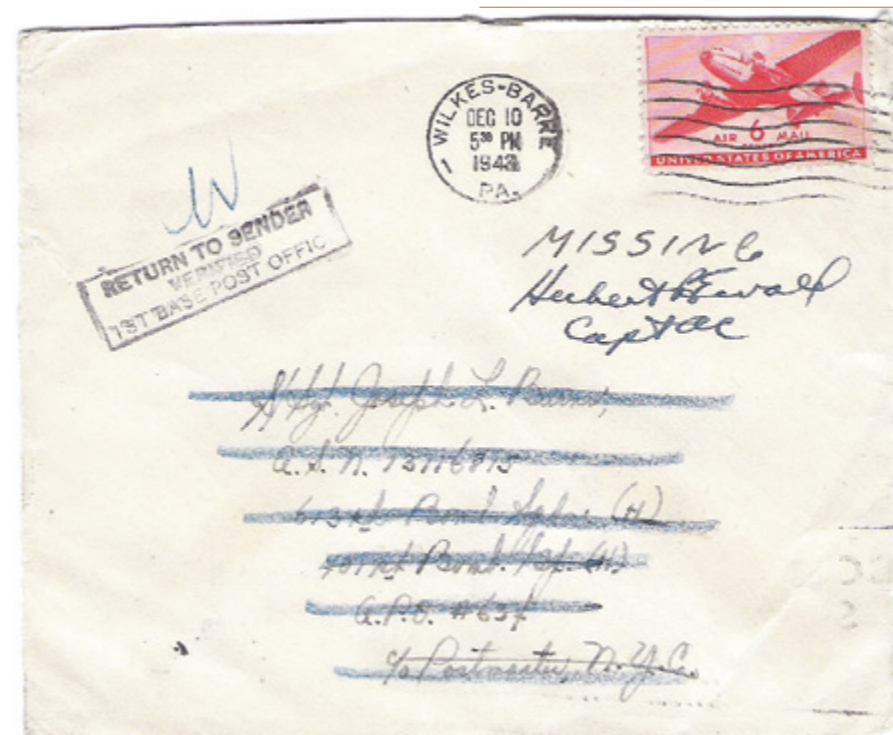 WILKES-BARRE
DEC 10
5 30 PM
1943
PA.
AIR 6 MAIL
CENTS
UNITED STATES OF AMERICA
RETURN TO SENDER
VERIFIED
1ST BASE POST OFFIC
MISSING
Herbert
Capt AC
S/Sgt. Joseph L.
A.S.N. 13116815
613th Bomb Sqdn. (H)
401st Bomb. Gp. (H)
A.P.O. #634
c/o Postmaster, N.Y.C.